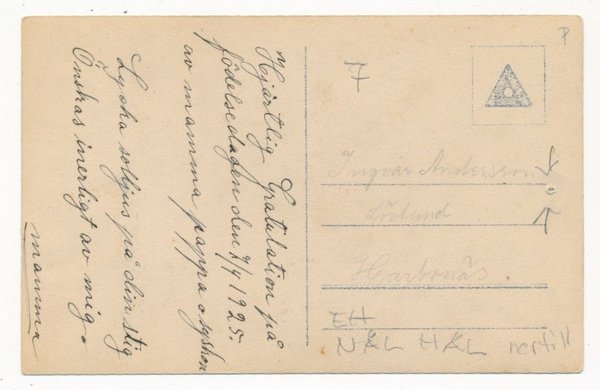 Hjärtlig Gratulation på
födelsedagen den 7/4 1925.
av mamma pappa o sysken
Lycka solljus på din stig
Önskas inerligt av mig.
mamma
7
P
Ingvar Andersson
Harbonäs.
EH
NÅL HÅL nertill